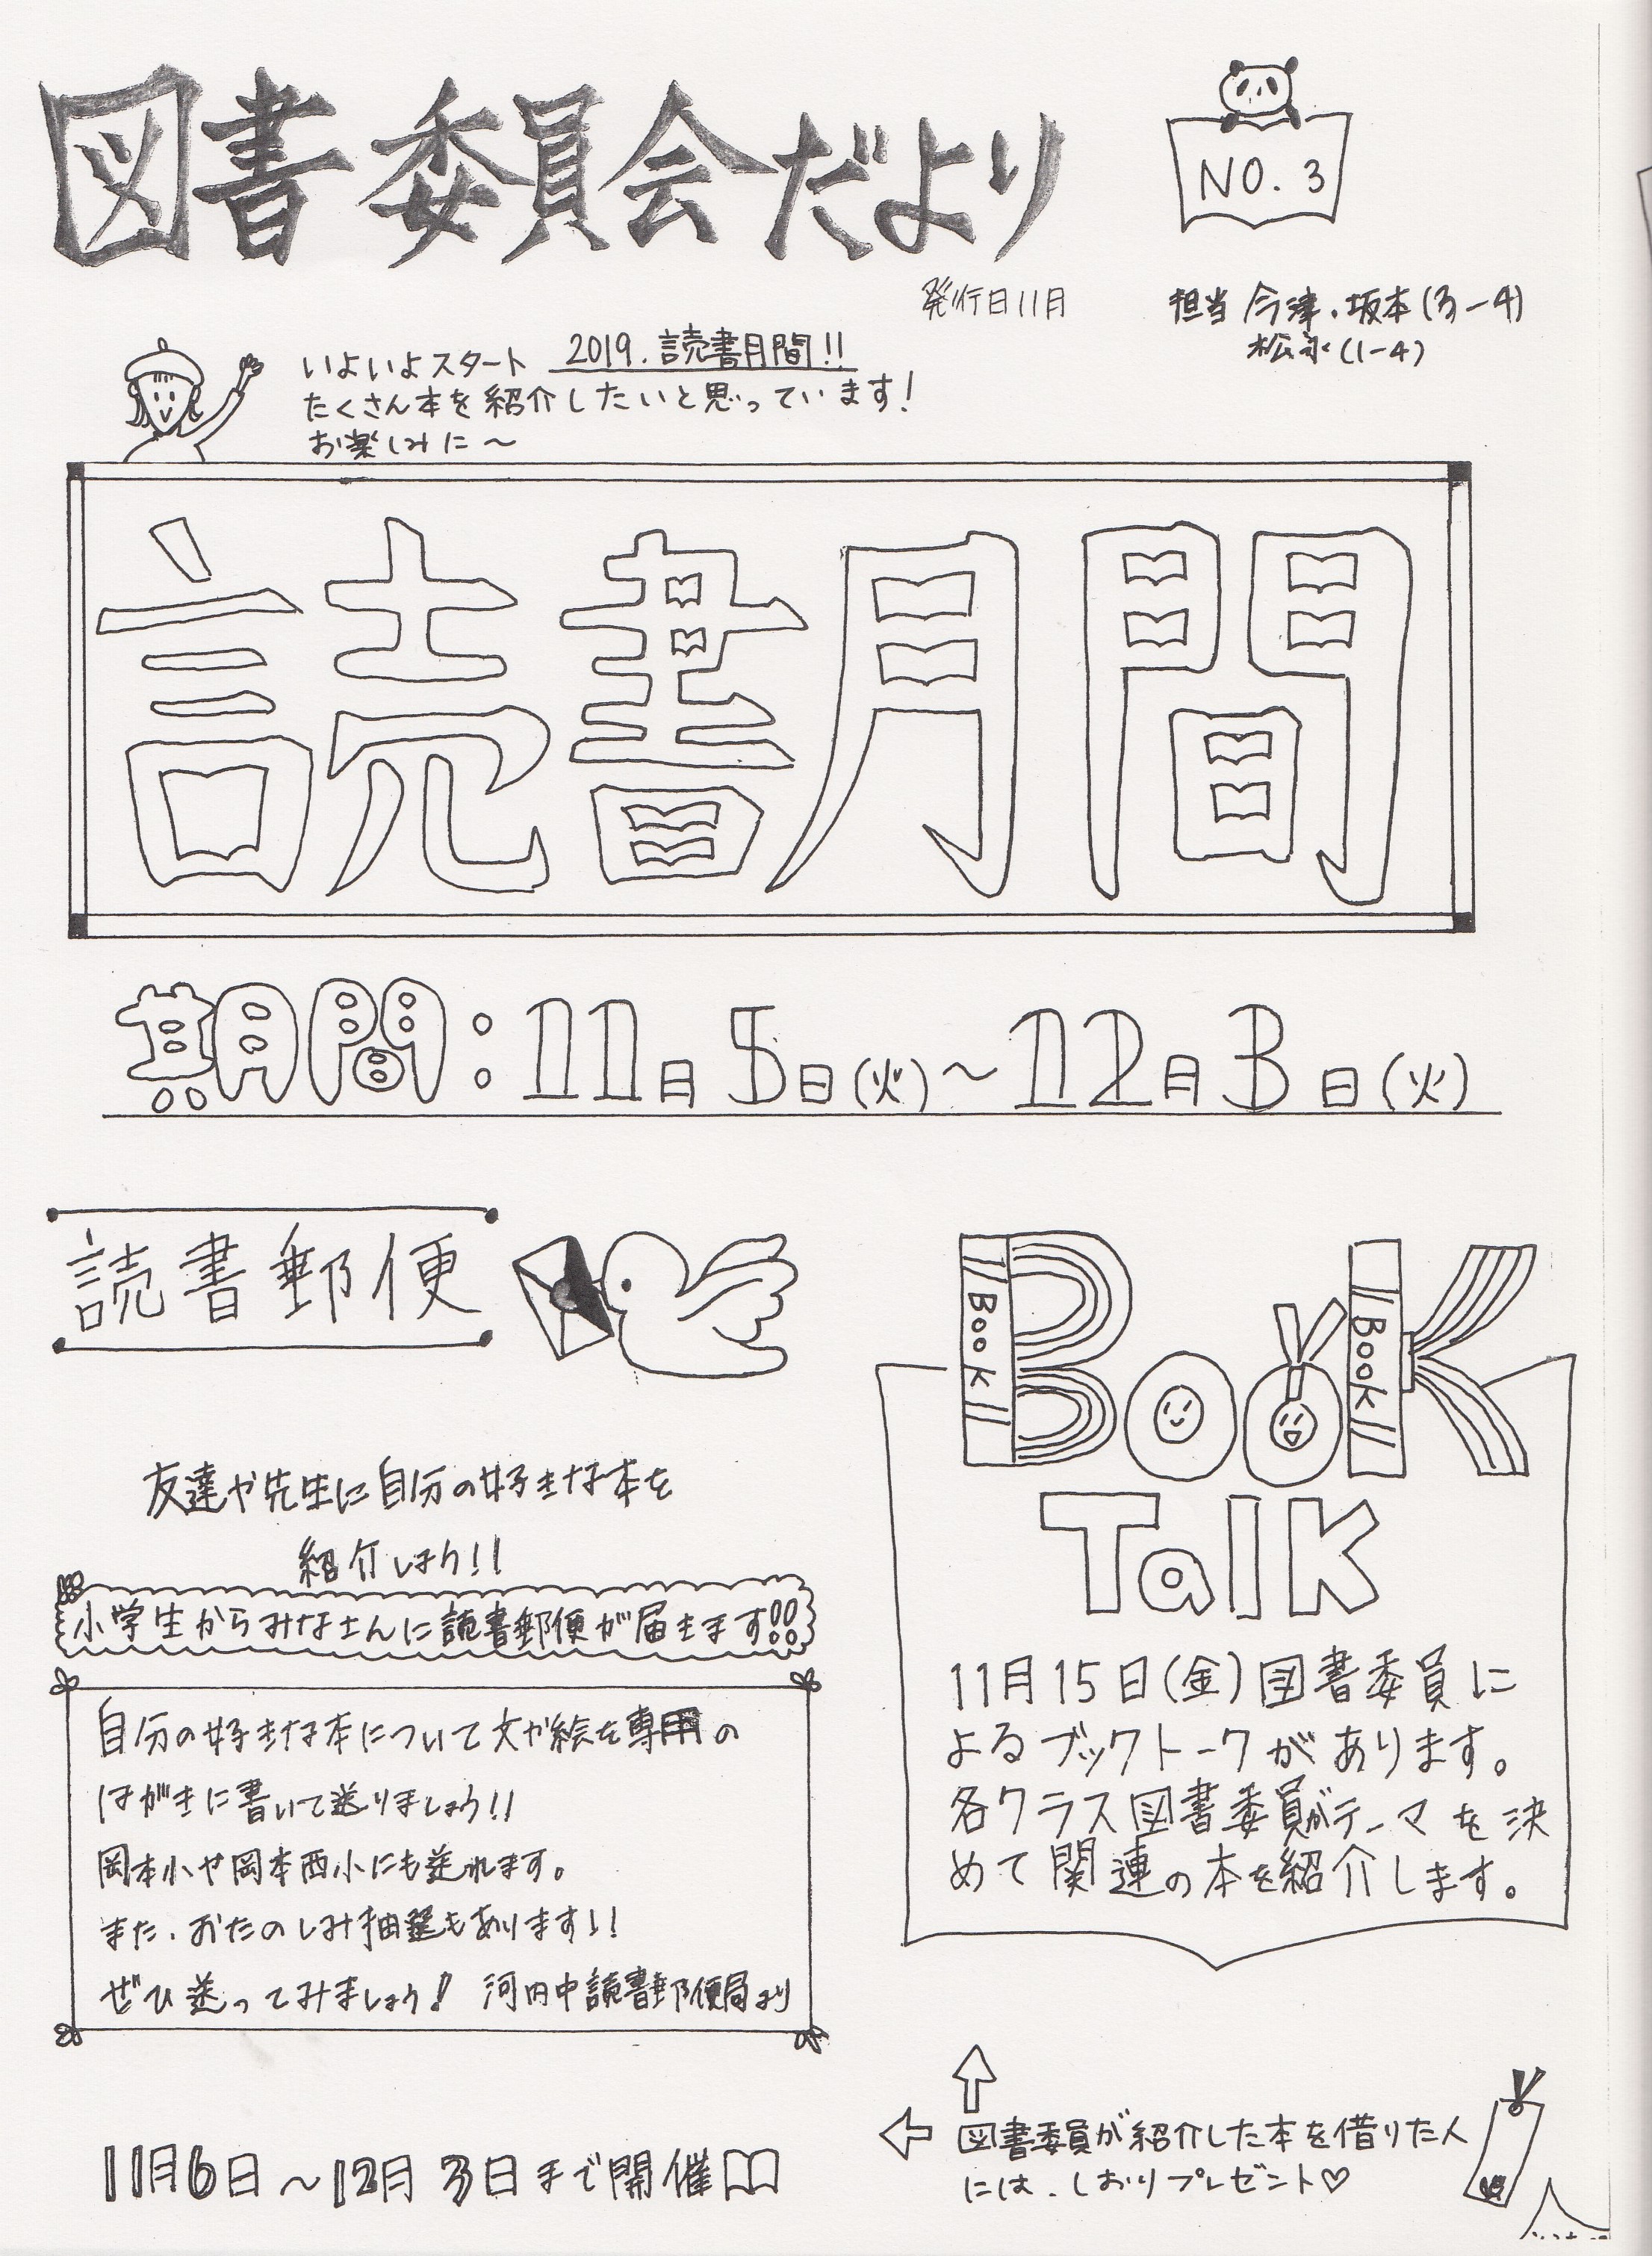 図書委員会だより
NO.3
発行日11月
担当 今津・坂本(3-4)
松永(1-4)
いよいよスタート 2019.読書月間!!
たくさん本を紹介したいと思っています!
お楽しみに~
読書月間
期間:11月5日(火)~12月3日(火)
読書郵便
友達や先生に自分の好きな本を
紹介しよう!!
小学生からみなさんに読書郵便が届きます!!
自分の好きな本について文や絵を専用の
はがきに書いて送りましょう!!
岡本小や岡本西小にも送れます。
また、おたのしみ抽選もあります!!
ぜひ送ってみましょう! 河内中読書郵便局より
11月6日~12月3日まで開催
Book
Book
Book
Talk
11月15日(金)図書委員に
よるブックトークがあります。
各クラス図書委員がテーマを決
めて関連の本を紹介します。
図書委員が紹介した本を借りた人
には、しおりプレゼント♡